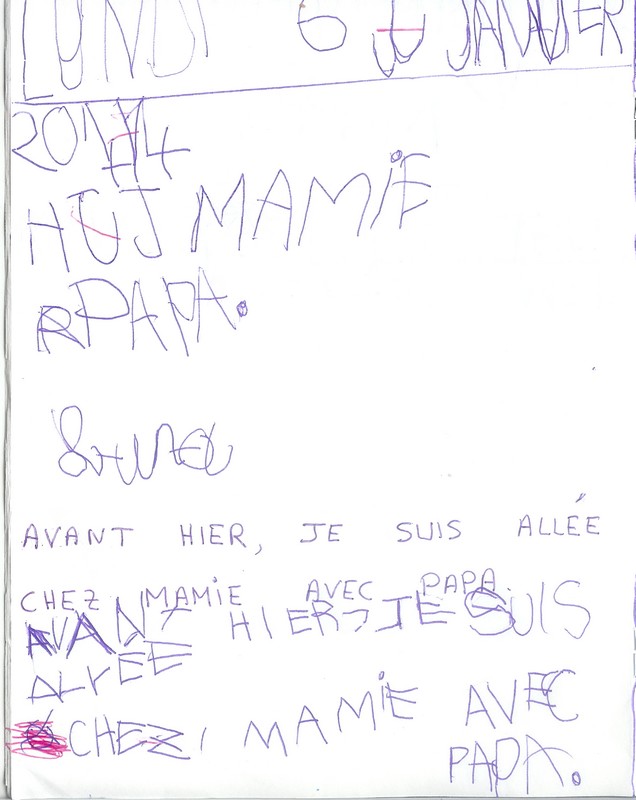 LUNDI 6 JANVIER
2014
HUJ MAMiE
RPAPA.
AVANT HIER, JE SUIS ALLÉE
CHEZ MAMiE AVEC PAPA.
AVANT HIER, JE SUIS
ALYEE
CHEZ MAMiE AVEC
PAPA.